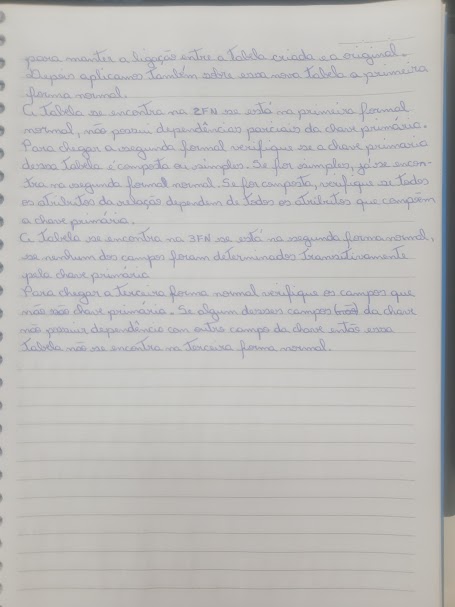 para manter a ligação entre a tabela criada e a original.
Depois aplicamos também sobre essa nova tabela a primeira
forma normal.
A tabela se encontra na 2FN se está na primeira formal
normal, não possui dependências parciais da chave primária.
Para chegar a segunda formal normal verifique se a chave primaria
dessa tabela é composta ou simples. Se for simples, já se encon-
tra na segunda formal normal. Se for composta, verifique se todos
os atributos da relação dependem de todos os atributos que compõem
a chave primária.
A tabela se encontra na 3FN se está na segunda forma normal,
se nenhum dos campos foram determinados transitivamente
pela chave primária
Para chegar a terceira forma normal verifique os campos que
não são chave primária. Se algum desses campos da chave
não possuir dependência com outro campo da chave então essa
tabela não se encontra na terceira forma normal.